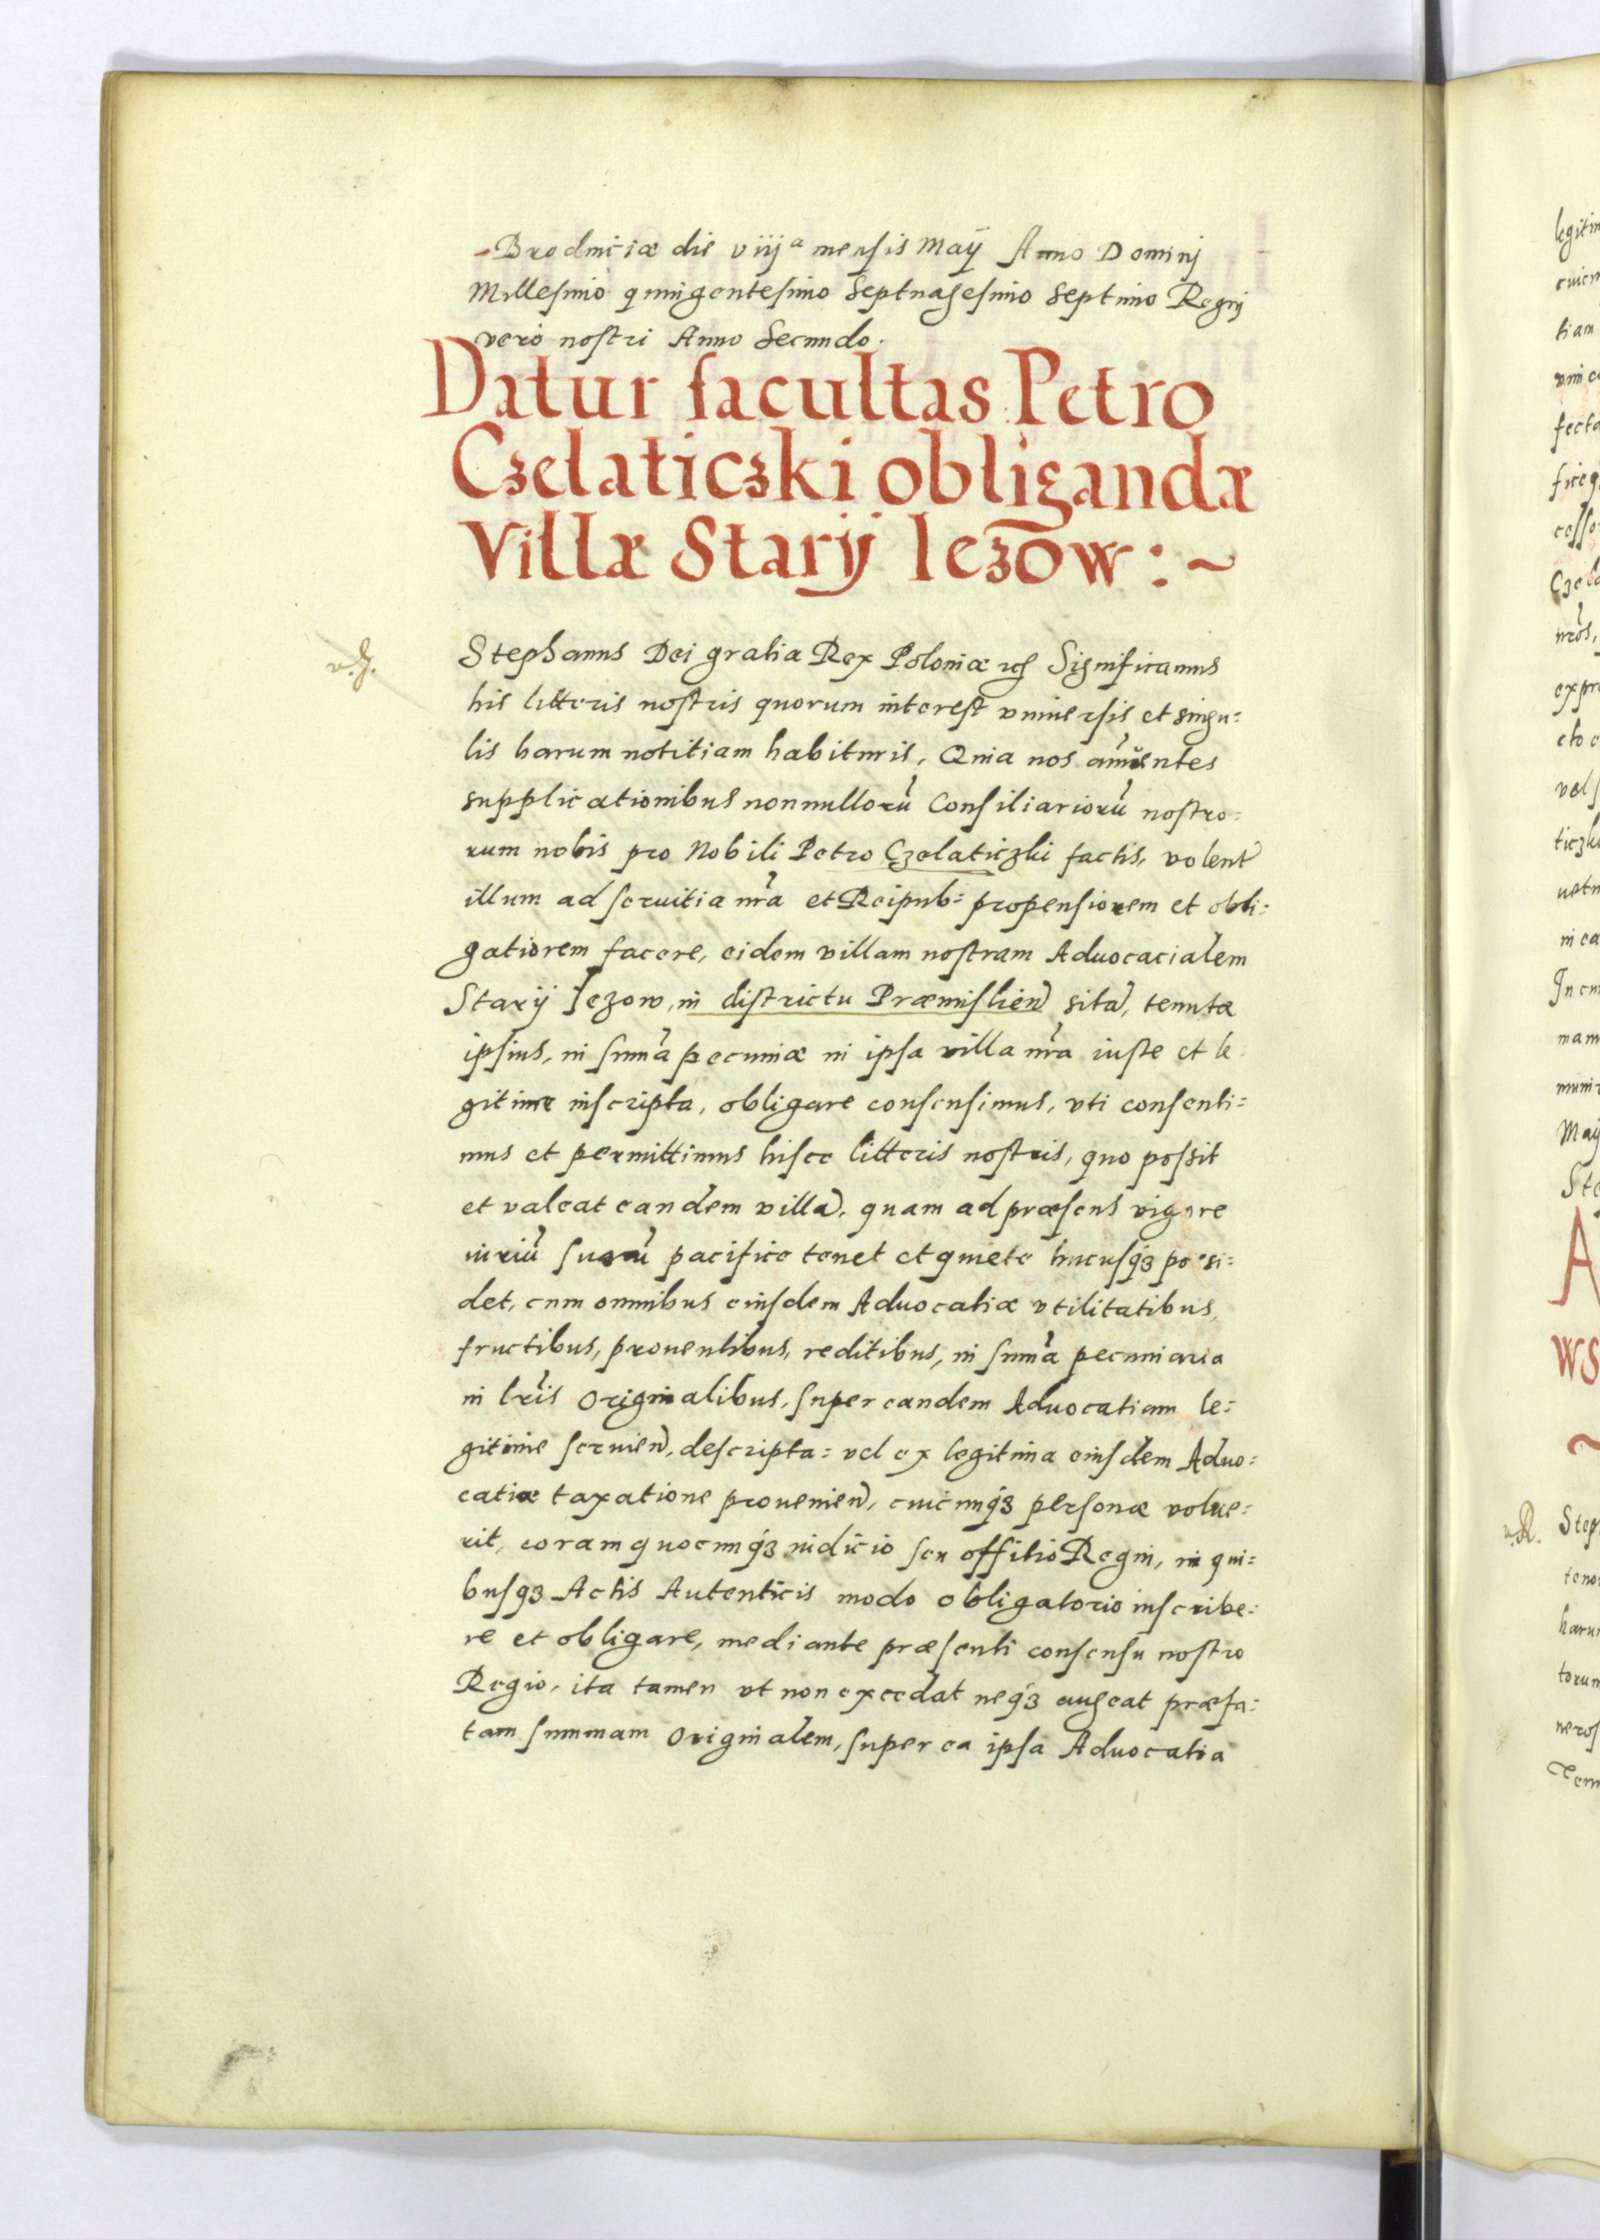 Brodniciæ die viija mensis Maÿ Anno Dominj
Millesimo quingentesimo Septuagesimo Septimo Regnj
vero nostri Anno Secundo.
Datur facultas Petro
Czelaticzki obligandæ
Villæ Starij lezow: ~
Stephanus Dei gratia Rex Poloniæ etc Significamus
his litteris nostris quorum interest vniuersis et singu=
lis harum notitiam habituris, Quia nos annuentes
supplicationibus nonnullorū Consiliariorū nostro=
rum nobis pro Nobili Petro Czelaticzki factis, volent
illum ad seruitia nra et Reipub: propensiorem et obli=
gatiorem facere, eidem villam nostram Aduocacialem
Starij Jezow, in districtu Præmislien sitā, tenutæ
ipsius, in sumā pecuniæ in ipsa villa nra iuste et le
gitime inscripta, obligare consensimus, vti consenti=
mus et permittimus hisce litteris nostris, quo possit
et valeat eandem villā, quam ad præsens vigore
iuriū suorū pacifice tenet et quiete hucusq3 possi=
det, cum omnibus eiusdem Aduocatiæ vtilitatibus,
fructibus, prouentibus, reditibus, in sumā pecuniaria
in lris Originalibus, super eandem Aduocatiam le=
gitime seruien, descripta= vel ex legitima eiusdem Aduo=
catiæ taxatione prouenien, cuicunq3 personæ volue=
rit, coram quocunq3 iudicio seu offitio Regni, in qui=
busq3 Actis Autenticis modo obligatorio inscribe=
re et obligare, mediante præsenti consensu nostro
Regio, ita tamen vt non excedat neq3 augeat præfa=
tam summam Originalem, super ea ipsa Aduocatia